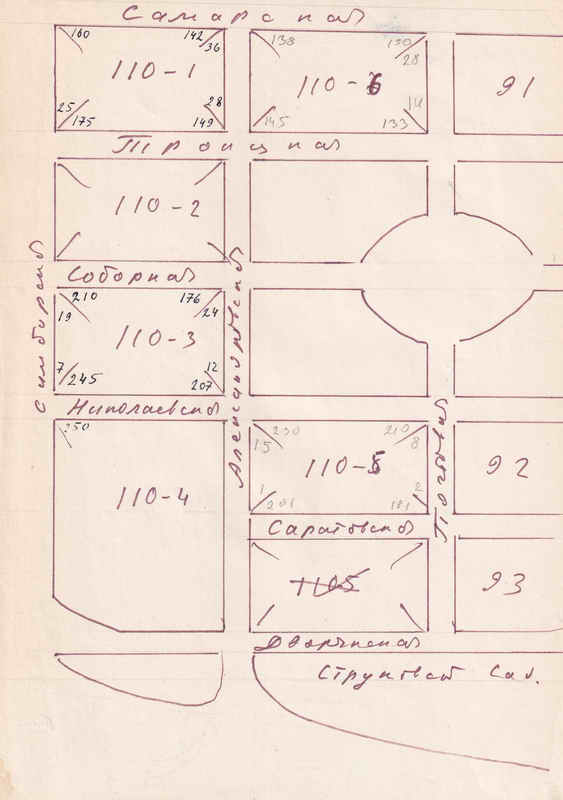 Самарская
160 142
36
110-1
25 28
175 149
138 150
28
110-6
14
145 133
91
Троицкая
110-2
Симбирской
Соборная
210 176
19 24
110-3
7 12
245 207
Александровской
Николаевской
250
110-4
230 210
15 8
110-5
1 2
201 181
Почтовая
92
Саратовской
1105
93
Дворянская
Струковский Сад.